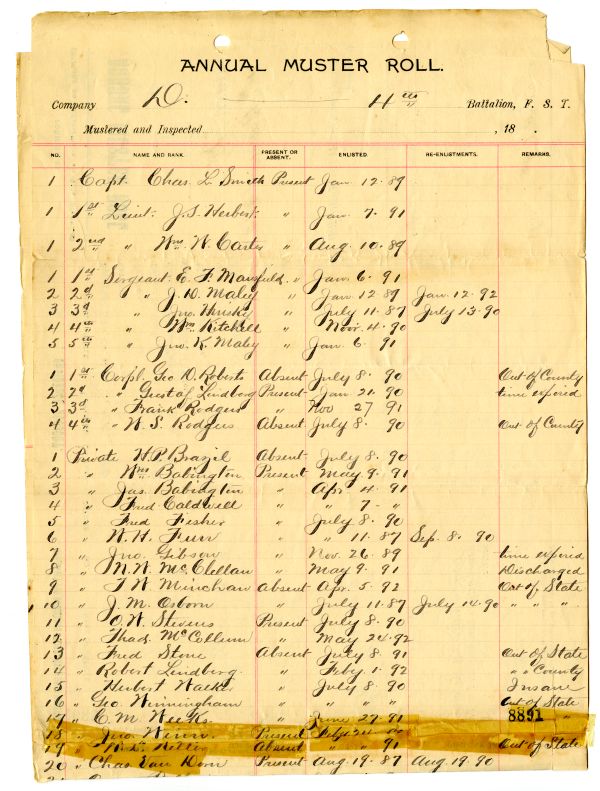 ANNUAL MUSTER ROLL.
Company D. 4th Battalion, F. S. T.
Mustered and Inspected , 18 .
NO. NAME AND RANK. PRESENT OR ABSENT. ENLISTED. RE-ENLISTMENTS. REMARKS.
1 Capt. Chas. L. Smith Present Jan. 12. 89
1 1st Lieut. J. S. Herbert " Jan. 7. 91
1 2nd " Wm. W. Carter " Aug. 10. 89
1 1st Sergeant E. F. Mansfield " Jan. 6. 91
2 2d " J. D. Maley " Jan. 12 89 Jan. 12. 92
3 3d " Jno. Husky " July 11. 87 July 13. 90
4 4th " Wm. Kitchell " Nov. 4. 90
5 5th " Jno. K. Maley " Jan 6. 91
1 1st Corpl. Geo. D. Roberts Absent July 8. 90 Out of County
2 2d " Gustaf Lindberg Present Jan 21. 90 time expired
3 3d " Frank Rodgers " Nov 27 91
4 4th " W. S. Rodgers Absent July 8. 90 Out of County
1 Private H. P. Brazil Absent July 8. 90
2 " Wm. Babington Present May 9. 91
3 " Jas. Babington " Apr. 4. 91
4 " Fred Caldwell " " 7. "
5 " Fred Fisher " July 8. 90
6 " W. H. " " 11. 87 Sep. 8. 90
7 " Jno. Gibson " Nov. 26. 89 time expired
8 " M. W. McClellan " May 9. 91 Discharged
9 " T. W. Absent Apr. 5. 92 Out of State
10 " J. M. Osborn " July 11. 87 July 14. 90 " " "
11 " O. W. Stevens Present July 8. 90
12 " Thad. McCollum " May 24. 92
13 " Fred Stone Absent July 8. 91 Out of State
14 " Robert Lindberg " Feby 1. 92 " " County
15 " Herbert " July 8. 90 Insane
16 " Geo. Winningham " " " " Out of State
17 " C. M. Weeks " June 27. 91 8891 "
18 " Jno. Present
19 " Absent " " 91 Out of State
20 " Chas. Van Dorn Present Aug. 19. 87 Aug. 19. 90